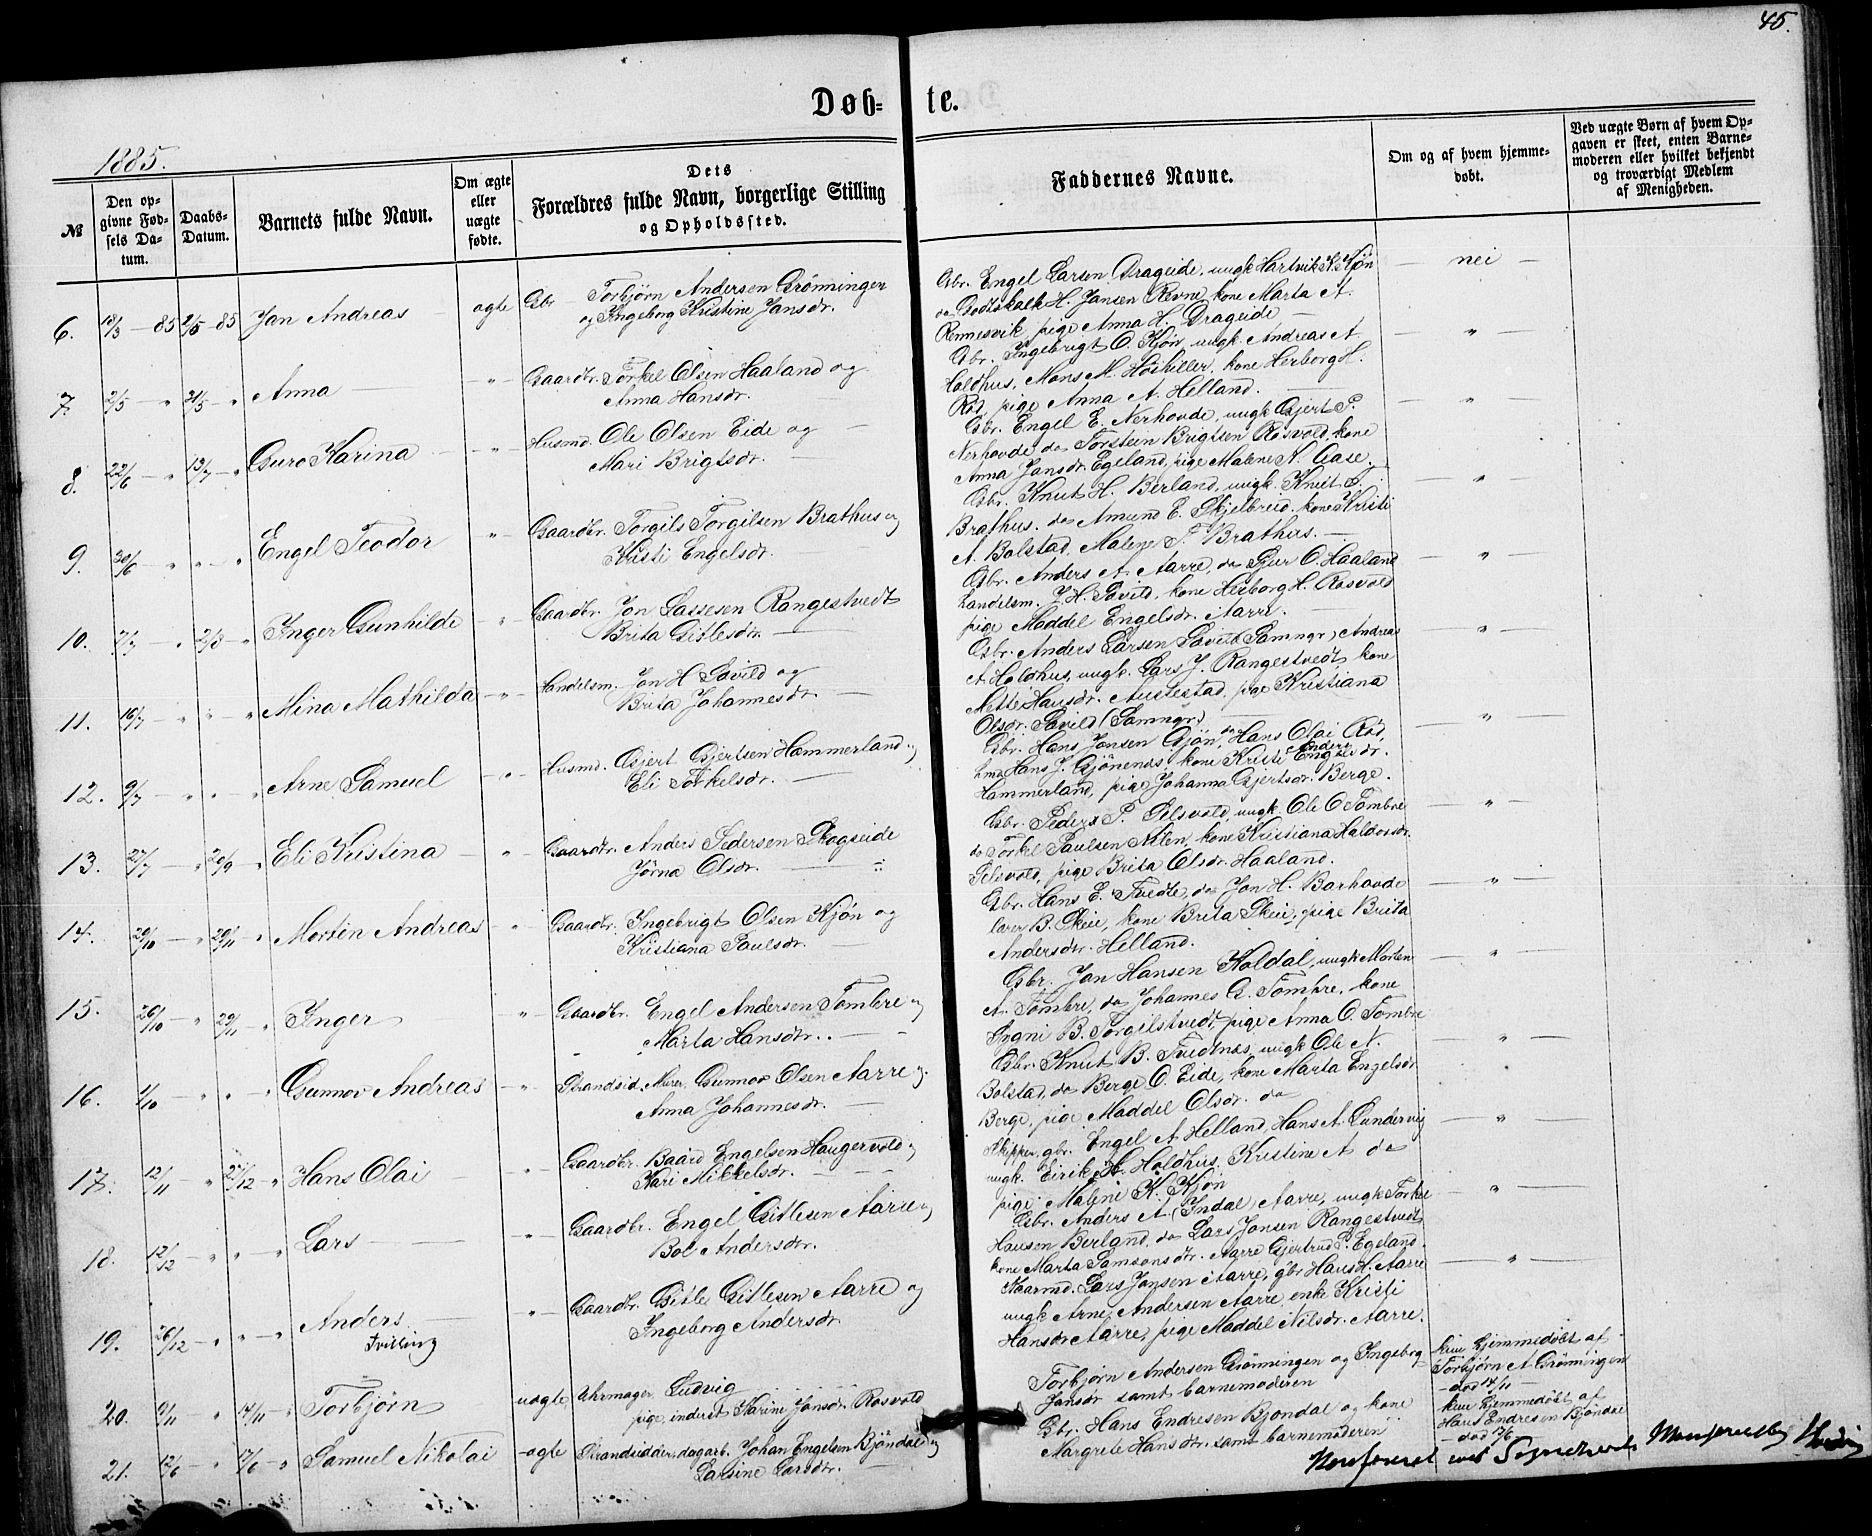 45.
Døb- te.
1885.
№
Den op-
givne Fød-
sels Da-
tum.
Daabs-
Datum.
Barnets fulde Navn.
Om ægte
eller
uægte
fødte.
Dets
Forældres fulde Navn, borgerlige Stilling
og Opholdssted.
Faddernes Navne.
Om og af hvem hjemme-
døbt.
Ved uægte Børn af hvem Op-
gaven er skeet, enten Barne-
moderen eller hvilket bekjendt
og troværdigt Medlem
af Menigheden.
6. 18/3 - 85 2/5 - 85 Jan Andreas - ægte Gbr - Torbjørn Andersen Grønningen
og Ingeborg Kristine Jansdr.
Gbr. Engel Larsen Drageide, ungk. Hartvik K. Kjøn - nei -
da Godtskalk H. Jansen Revne, kone Marta A.
Rennesvik, pige Anna H. Drageide
7. 2/5 - " 21/5 - " Anna - " - Gaardbr. Torkel Olsen Haaland og
Anna Hansdr.
Gbr. Ingebrigt O. Kjøn, ungk. Andreas A. - " -
Holdhus, Mons M. Høshiller, kone Herborg H.
Rød, pige Anna A. Helland.
8. 22/6 - " 13/7 - " Guro Karina - " - Husmd. Ole Olsen Eide og
Mari Brigtsdr.
Gbr. Engel E. Nerhovde, ungk. Gjert P. - " -
Nerhovde, da Torstein Brigtsen Røsvold, kone
Anna Jansdr. Egeland, pige Malene N. Aase.
9. 30/6 - " " - " Engel Teodor " Gaardbr. Torgils Torgilsen Brathus og
Kristi Engelsdr.
Gbr. Knut H. Berland, ungk. Knut T. - " -
Brathus. da Amund E. Skjelbreid. kone Kristi
A. Bolstad, Malene T. Brathus.
10. 7/7 " 2/8 - " Inger Gunhilde - " - Gaardbr. Jon Lassesen Rangestvedt
Brita Gitlesdr.
Gbr. Anders A. Aarre, da Sjur O. Haaland - " -
handelsm. J. H. Søvild, kone Herborg H. Røsvold
pige Maddel Engelsdr. Aarre.
11. 16/7 - " " - " Mina Mathilda - " - Handelsm. Jon H. Søvild og
Brita Johannesdr.
Gbr. Anders Larsen Søvild (Samngr), Andreas - " -
A. Holdhus, ungk. Lars J. Rangestvedt, kone
Mette Hansdr. Austestad, pige Kristiana
Olsdr. Søvild (Samngr)
12. 9/7 - " " - " Arne Samuel - " - Husmd. Gjert Gjertsen Hammerland og
Eli Torkelsdr.
Gbr. Hans Jonsen Gjøn, da Hans Olai Rød, - " -
hmd Hans J. Gjønenes, kone Kristi Endersdr.
Hammerland, pige Johanna Gjertsdr. Berge.
13. 27/7 - " 20/9 " Eli Kristina " Gaardbr. Anders Pedersen Skogseide
Jørna Olsdr.
Gbr. Peder P. Pelsvold, ungk. Ole O Tombre - " -
da Torkel Paulsen Nilen, kone Kristiana Haldorsdr.
Pelsvold, pige Brita Olsdr. Haaland.
14. 20/10 - " 20/11 " Morten Andreas " Gaardbr. Ingebrigt Olsen Kjøn og
Kristiana Paulsdr.
Gbr. Hans E. Tvedte, da Jon H. Barhovde - " -
lærer B. Skeie, kone Brita Skeie, pige Brita
Andersdr. Helland.
15. 26/10 - " 29/11 " Inger - " - Gaardbr. Engel Andersen Tombre og
Marta Hansdr.
Gbr. Jon Hansen Koldal, ungk. Morten - " -
A. Tombre, da Johannes G. Tombre, kone
Sygni B. Torgilstvedt, pige Anna O. Tombre
16. 1/10 - " " - " Gunnov Andreas - " - Strandsid. Murer, Gunnov Olsen Aarre og
Anna Johannesdr.
Gbr. Knut B. Tvedtnæs, ungk. Ole N. - " -
Bolstad, da Berge O. Eide, kone Marta Engelsdr
Berge, pige Maddel Olsdr. da
17. 12/11 - " 27/12 " Hans Olai " Gaardbr. Baard Engelsen Haugervold og
Kari Mikkelsdr.
Skipper, gbr. Engel A. Helland, Hans A. Lundervig - " -
ungk. Eirik H. Holdhus, Kristine A. da
pige Malene K. Kjøn
18. 12/12 " " - " Lars " Gaardbr. Engel Gitlesen Aarre og
Bol Andersdr.
Gbr. Anders A. (Indal) Aarre, ungk. Torkel - " -
Hansen Berland, da Lars Jonsen Rangestvedt
kone Marta Samsonsdr. Aarre, Gjertrud P. Egeland.
19. 26/12 - " " - " Anders. - " - Gaardbr. Gitle Gitlesen Aarre og
Tvilling
Ingeborg Andersdr
Kaarmd. Lars Jonsen Aarre, gbr Hans H. Aarre - " -
ungk. Arne Andersen Aarre, enke Kristi
Hansdr Aarre, pige Maddel Nilsdr. Aarre.
20. 9/11 - " 14/11 " Torbjørn uægte Uhrmager Ludvig
pige, inderst Karine Jonsdr Røsvold
Torbjørn Andersen Grønningen og Ingeborg
Jansdr samt barnemoderen
kun hjemmedøbt af
Torbjørn A. Grønningen
- død 14/11 -
21. 12/6 - " 17/6 - " Samuel Nikolai - ægte Strandsidder, dagarb. Johan Engelsen Bjøndal og
Larsine Larsdr.
Gbr. Hans Endresen Bjøndal og kone
Margrete Hansdr. samt barnemoderen
kun hjemmedøbt af
Hans Endresen Bjøndal
- død 17/6 -
Konfereret med